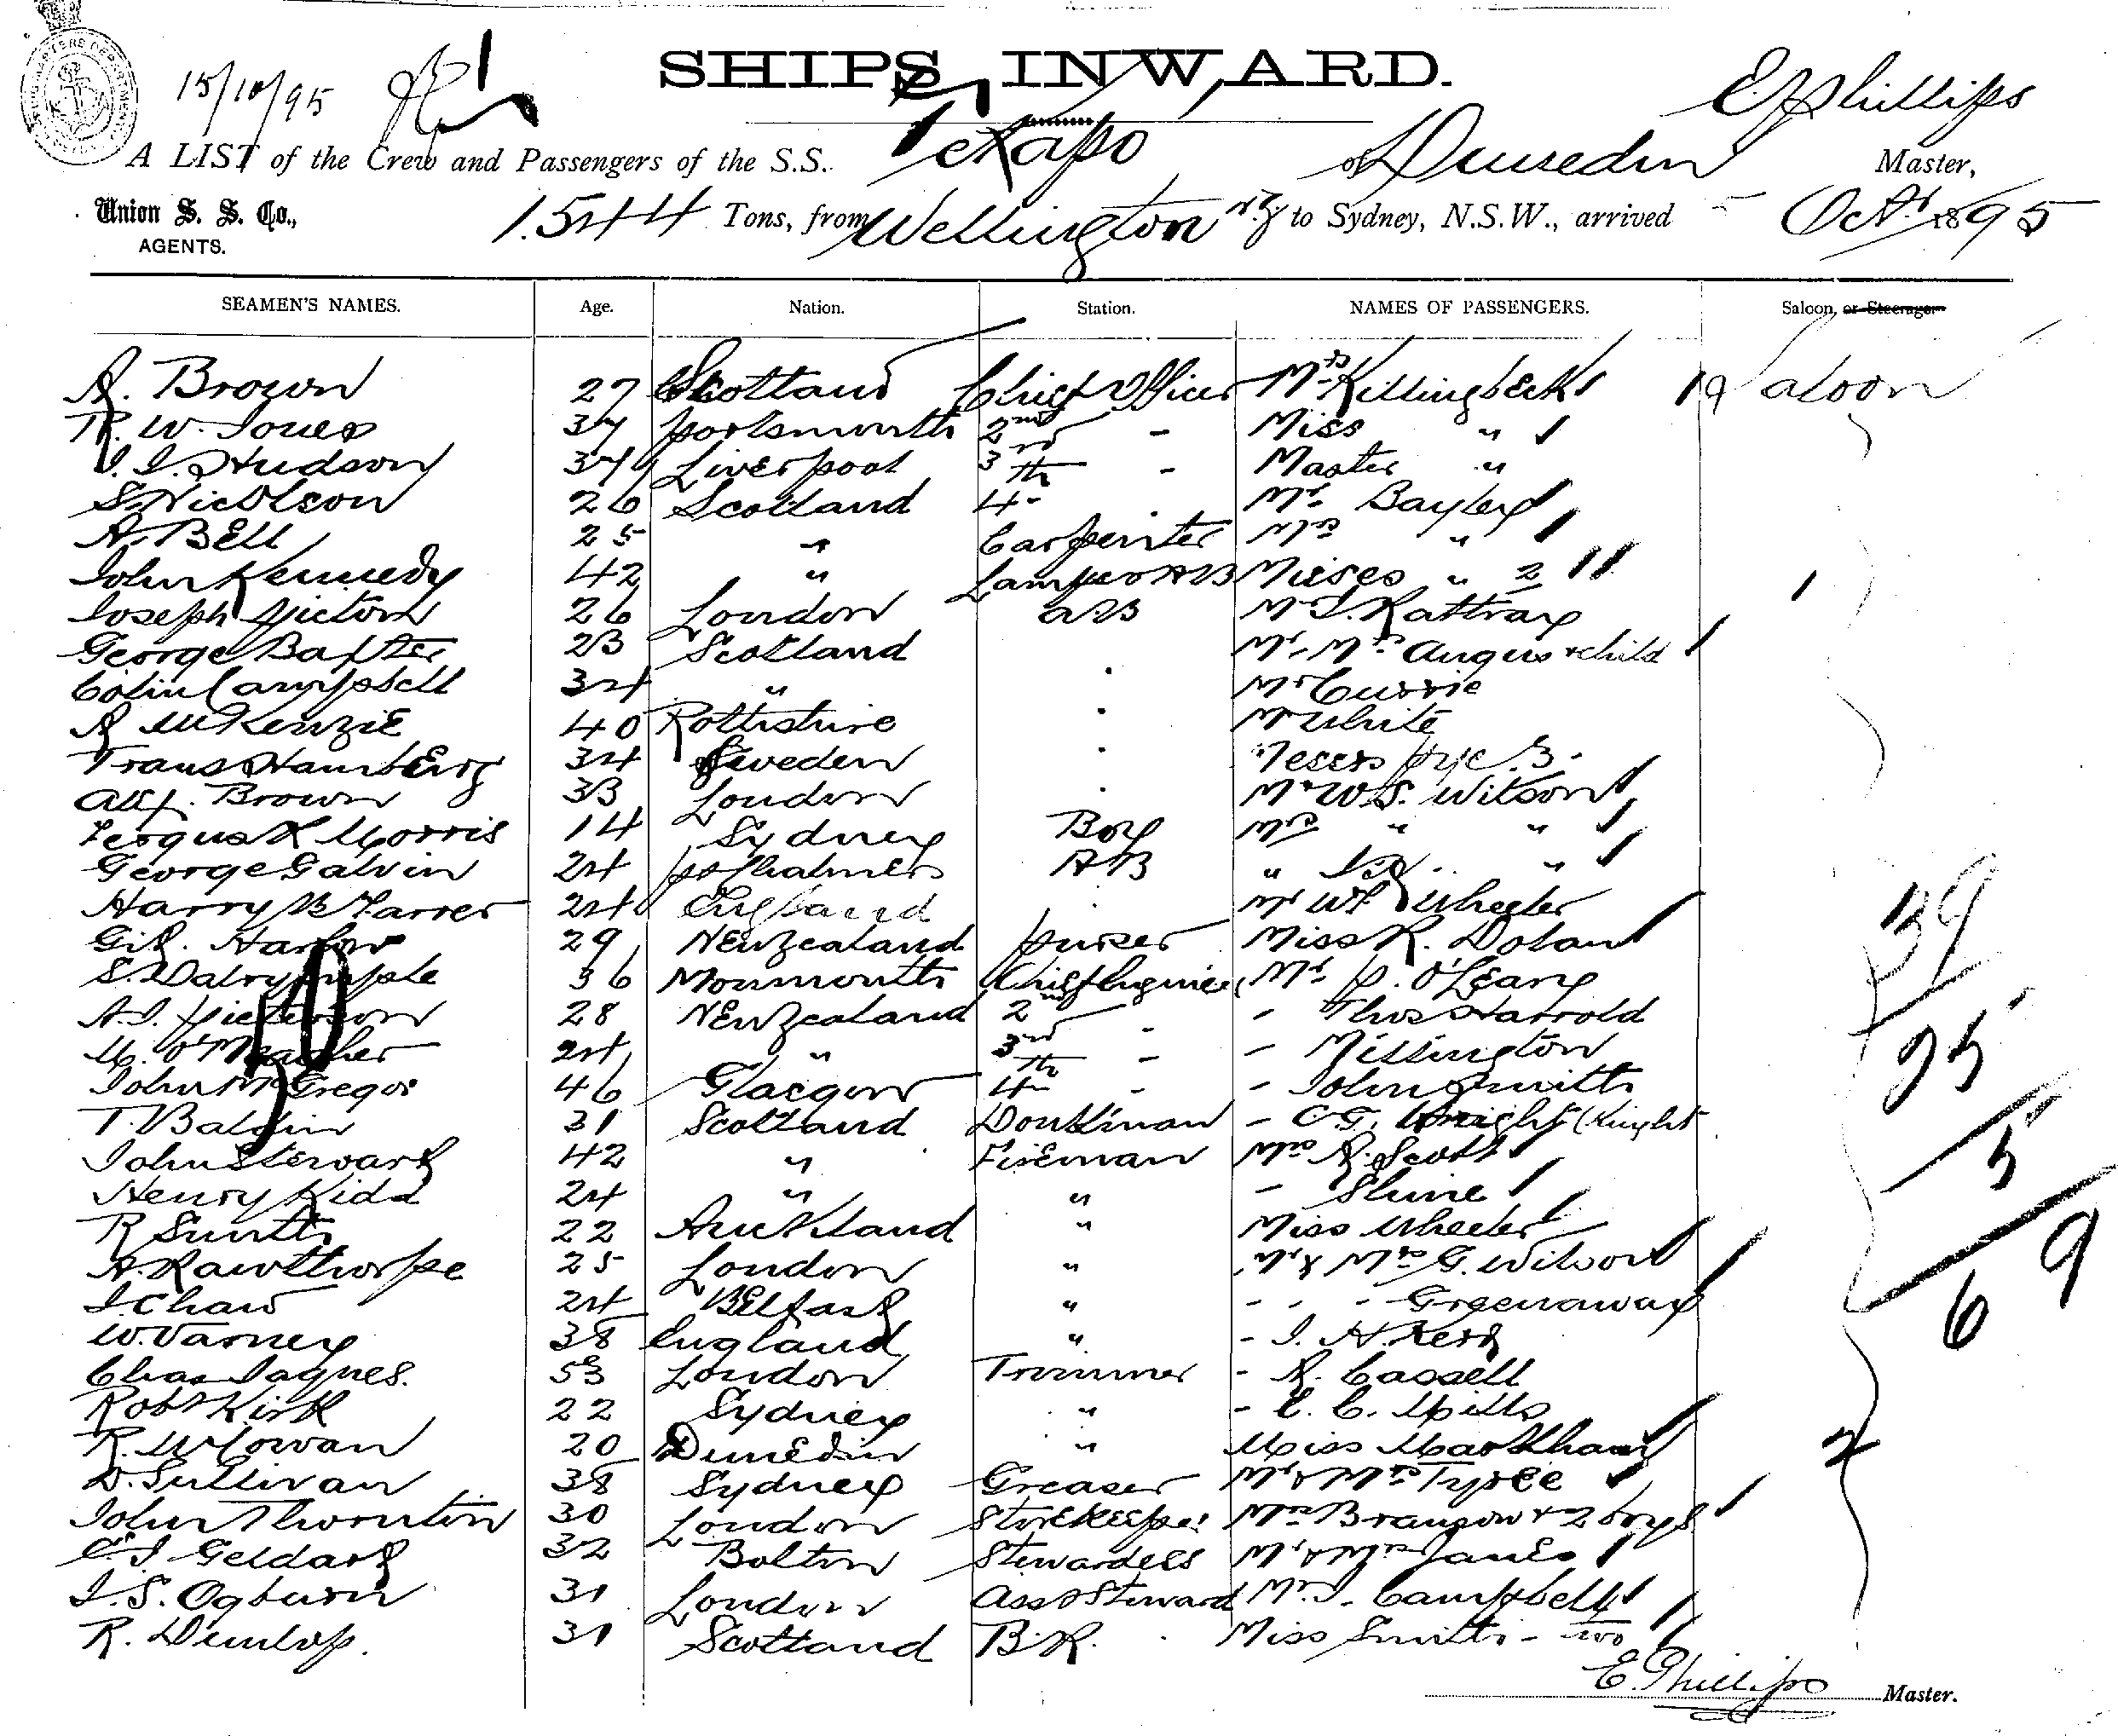 15/10/95
SHIPS INWARD.
E Phillips
A LIST of the Crew and Passengers of the S.S. Tekapo of Dunedin Master,
Union S. S. Co.,
AGENTS.
1544 Tons, from Wellington N.Z to Sydney, N.S.W., arrived 5 Oct 1895
SEAMEN'S NAMES. Age. Nation. Station. NAMES OF PASSENGERS. Saloon, or Steerage.
A. Brown 27 Scotland Chief Officer Mrs Killingbeck 19 Saloon
R. W. Jones 37 Portsmouth 2nd - Miss "
J. J. Hudson 37 Liverpool 3rd - Master "
S. Nicolson 26 Scotland 4th Mr Bayley
A. Bell 25 " Carpenter Mrs "
John Kennedy 42 " Lamps & AB Misses " 2
Joseph Victor 26 London AB Mr J. Rattray
George Baxter 23 Scotland Mr Mrs Angus & child
Colin Campbell 34 " Mr Currie
A McKenzie 40 Mr White
Frans Hamberg 34 Sweden 3
Alf. Brown 33 London Mr W.S. Wilson
Fergus Morris 14 Sydney Boy Mrs " "
George Galvin 24 Pt Chalmers AB " "
Harry B Farrer 24 England Mr Wheeler
Harlow 29 New Zealand Purser Miss K. Dolan
S. Dalrymple 36 Monmouth Chief Engineer Mr P. O'Leary
A. J. 28 New Zealand 2nd - - Thos Harrold
M. O'Meagher 24 " 3rd - - Millington
John McGregor 46 Glasgow 4th - - John Smith
T. Baldin 31 Scotland Donkman - C.G. Wright (Knight
John Stewart 42 " Fireman Mrs A. Scott
Henry Kidd 24 " " - Shine
R Smith 22 Auckland " Miss Wheeler
A. Rawsthorpe 25 London " Mr & Mrs G. Wilson
J Chaw 24 Belfast " - - - Greenaway
W. Varney 38 England " - J. H. Kerr
Chas Jaques. 53 London Trimmer - A. Cassell
Robt Kirk 22 Sydney " - E. C. Mills
R. McCowan 20 Dunedin " Miss Markham
D. Sullivan 38 Sydney Greaser Mr & Mrs Tyree
John Thornton 30 London Storekeeper Mrs Branson & 2 boys
E. J Geldart 32 Bolton Stewardess Mr & Mrs Janes
J. S. Ogburn 31 London Asst Steward Mr J. Campbell
R. Dunlop. 31 Scotland B.R. Miss Smith - two
39
25
5
6 9
2
E. Phillips Master.